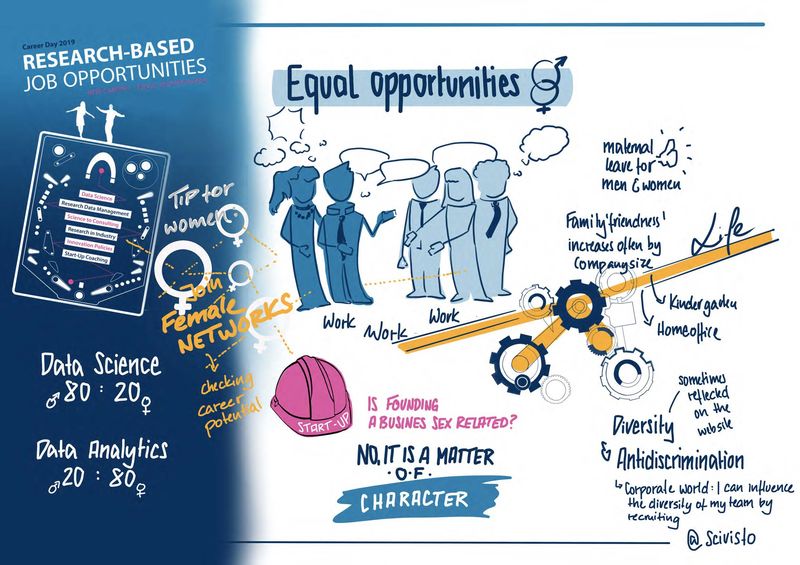 Career Day 2019
RESEARCH-BASED
JOB OPPORTUNITIES
Data Science
Research Data Management
Science to Consulting
Research in Industry
Innovation Policies
Start-Up Coaching
Tip for
women:
Join
Female
NETWORKS
checking
career
potential
Data Science
♂80 : 20♀
Data Analytics
♂20 : 80♀
Equal opportunities
Work
Work
Work
Life
maternal
leave for
men & women
Family 'friendness'
increases often by
company size
Kindergarden
Homeoffice
START-UP
IS FOUNDING
A BUSINES SEX RELATED?
NO, IT IS A MATTER
·O·F·
CHARACTER
sometimes
reflected
on the
website
Diversity
& Antidiscrimination
↳ Corporate world: I can influence
the diversity of my team by
recruiting
@ Scivisto